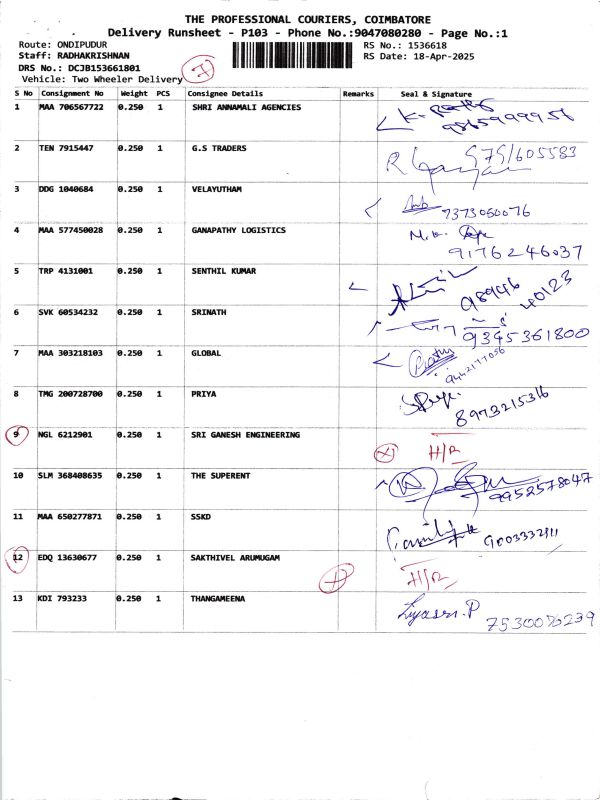 THE PROFESSIONAL COURIERS, COIMBATORE
Delivery Runsheet - P103 - Phone No.:9047080280 - Page No.:1
Route: ONDIPUDUR
RS No.: 1536618
Staff: RADHAKRISHNAN
RS Date: 18-Apr-2025
DRS No.: DCJB153661801
Vehicle: Two Wheeler Delivery
S No Consignment No Weight PCS Consignee Details Remarks Seal & Signature
1 MAA 706567722 0.250 1 SHRI ANNAMALI AGENCIES
2 TEN 7915447 0.250 1 G.S TRADERS 9791605583
3 DDG 1040684 0.250 1 VELAYUTHAM 7373060076
4 MAA 577450028 0.250 1 GANAPATHY LOGISTICS
9176246037
5 TRP 4131001 0.250 1 SENTHIL KUMAR 98946 40123
6 SVK 60534232 0.250 1 SRINATH
9345361800
7 MAA 303218103 0.250 1 GLOBAL
8 TMG 200728700 0.250 1 PRIYA
8973215316
9 NGL 6212901 0.250 1 SRI GANESH ENGINEERING H/R
10 SLM 368408635 0.250 1 THE SUPERENT
9952578047
11 MAA 650277871 0.250 1 SSKD
12 EDQ 13630677 0.250 1 SAKTHIVEL ARUMUGAM H/R
13 KDI 793233 0.250 1 THANGAMEENA